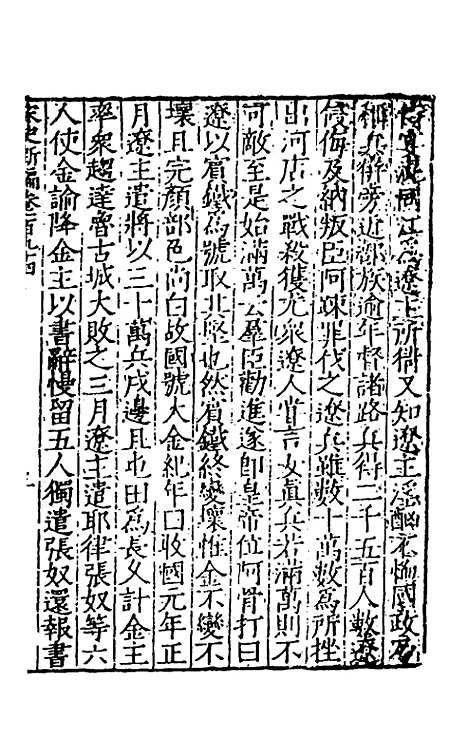 侍宴混同江爲遼主所銜又知遼主淫酗不恤國政乃
稱兵併旁近部族逾年督諸路兵得二千五百人數遼
侵侮及納叛臣阿疎罪伐之遼兵雖數十萬數爲所挫
出河店之戰殺獲尤衆遼人嘗言女眞兵若滿萬則不
可敵至是始滿萬云羣臣勸進遂卽皇帝位阿骨打曰
遼以賓鐵爲號取其堅也然賓鐵終變壞惟金不變不
壞且完顏部色尚白故國號大金紀年曰收國元年正
月遼主遣將以三十萬兵戍邊且屯田爲長久計金主
率衆趨達魯古城大敗之三月遼主遣耶律張奴等六
人使金諭降金主以書辭慢留五人獨遣張奴還報書
宋史新編卷一百九十四